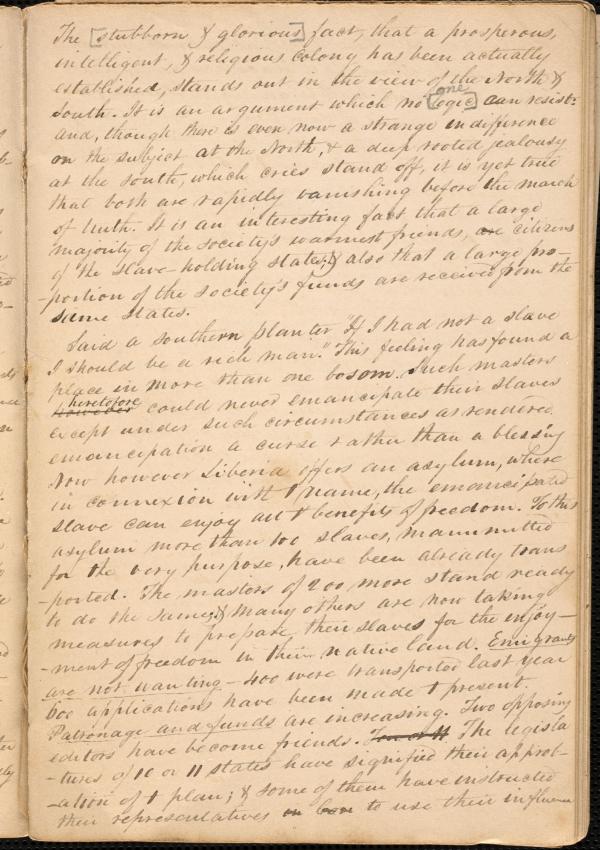 The [stubborn & glorious] fact, that a prosperous,
intelligent, & religious colony has been actually
established, stands out in the view of the North &
South. It is an argument which no [logic] one can resist:
and, though there is even now a strange indifference
on the subject at the North, & a deep rooted jealousy
at the South, which cries stand off, it is yet true
that both are rapidly vanishing before the march
of truth. It is an interesting fact that a large
majority of the society's warmest friends, are citizens
of the slave-holding states; & also that a large pro-
-portion of the society's funds are received from the
same states.
Said a southern planter "If I had not a slave
I should be a rich man." This feeling has found a
place in more than one bosom. Such masters
however heretofore could never emancipate their slaves
except under such circumstances as rendered
emancipation a curse rather than a blessing
Now however Liberia offers an asylum, where
in connexion with t name, the emancipated
slave can enjoy all t benefits of freedom. To this
asylum more than 100 slaves, manumitted
for the very purpose, have been already trans
-ported. The masters of 200 more stand ready
to do the same; & many others are now taking
measures to prepare their slaves for the enjoy-
-ment of freedom in their native land. Emigrants
are not wanting - 400 were transported last year
600 applications have been made t present.
Patronage and funds are increasing. Two opposing
editors have become friends. Ten or 11 The legisla
-tures of 10 or 11 states have signified their approb-
-ation of t plan; & some of them have instructed
their representatives to use their influence